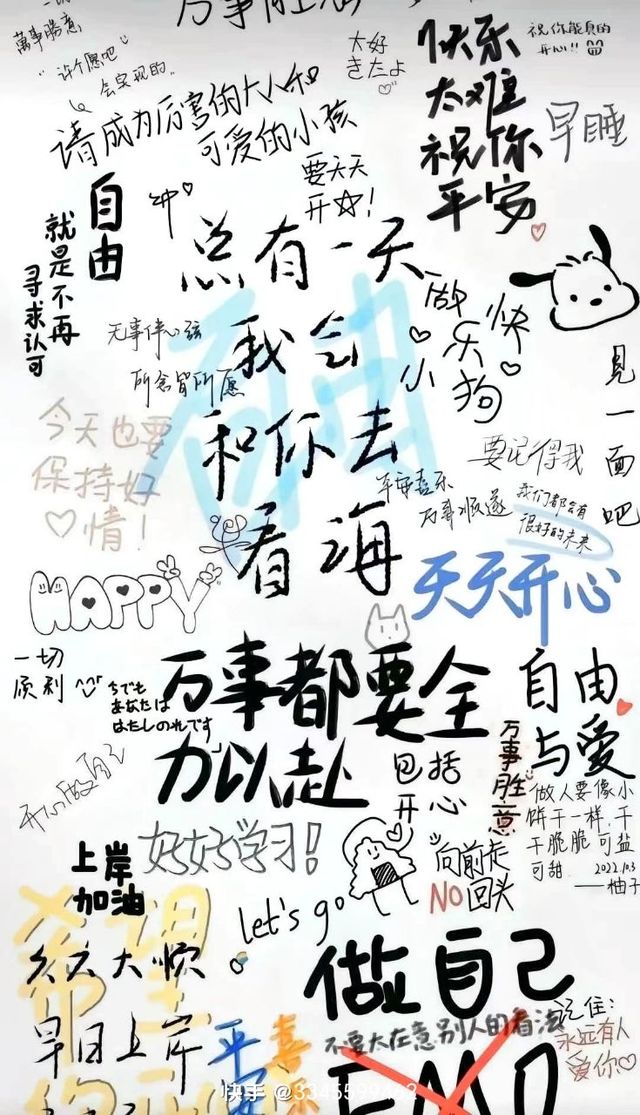 万事
萬事勝意
“许个愿吧
会实现的”
请成为厉害的大人和
可爱的小孩
大好
きたよ
快乐
太难
祝你
平安
祝你能真的
开心!!
早睡
要天天
开☆!
冲
自由
就是不再
寻求认可
总有一天
我会
和你去
看海
自由
做
快
乐
小
狗
见一面吧
无事伴心弦
所念皆所愿
今天也要
保持好
♡情!
要记得我
平安喜乐
万事顺遂
我们都会有
很好的未来
HAPPY
天天开心
一切
顺利
今でも
あなたは
はたしのれです
万事都要全
力以赴
包括
开心
自由
与爱
万事胜意
做人要像小
饼干一样,干
干脆脆 可盐
可甜 2022.10.3
——柚子
开心做自己
好好学习!
上岸
加油
“向前走
NO回头
let's go
希望
天天大顺
早日上岸
平安
喜
做自己
不要太在意别人的看法
EMO
记住:
永远有人
爱你♡
快手 @3345599462